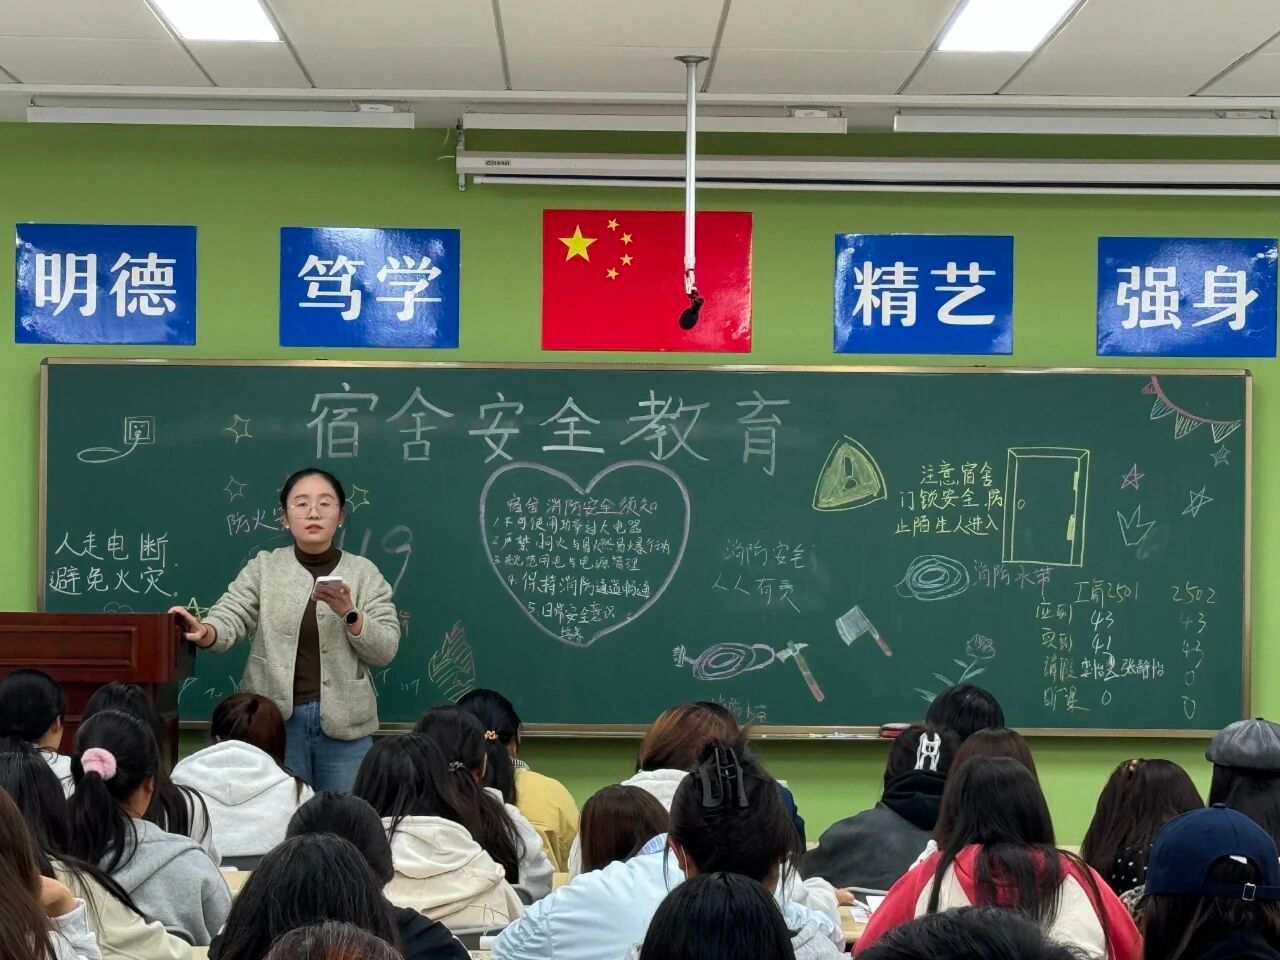 明德
笃学
精艺
强身
宿舍安全教育
人走电断
避免火灾
防火
119
宿舍消防安全须知
1.不可使用功率过大电器
2.严禁明火与易燃易爆行为
3.规范用电与电源管理
4.保持消防通道畅通
5.日常安全意识
培养
消防安全
人人有责
注意宿舍
门锁安全,防
止陌生人进入
消防水带
工商2501 2502
应到 43 43
实到 41 43
请假 张静怡 0
旷课 0 0